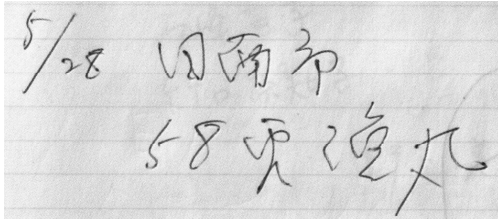 5/28 日南市
58 漁丸